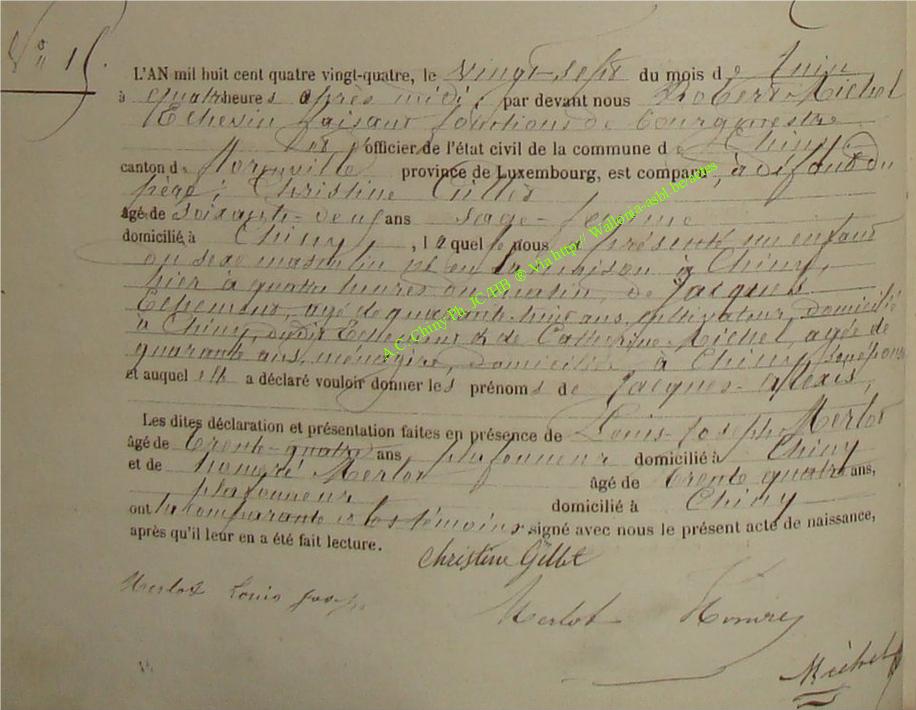 No 15.
L'AN mil huit cent quatre vingt-quatre, le vingt-sept du mois de Juin
à quatre heures après midi, par devant nous Robert Michel
Echevin faisant fonctions de bourgmestre
officier de l'état civil de la commune de Chiny
canton de Florenville province de Luxembourg, est comparue, à défaut du
père, Christine Gillet
âgé de soixante-neuf ans sage-femme
domicilié à Chiny, laquelle nous a présenté un enfant
du sexe masculin né en sa maison à Chiny,
hier à quatre heures du matin, de Jacques
Echement, âgé de quarante-huit ans, cultivateur, domicilié
à Chiny, dudit Echement & de Catherine Michel, âgée de
quarante ans, ménagère, domiciliée à Chiny, son épouse
et auquel elle a déclaré vouloir donner les prénoms de Jacques-Alexis,
Les dites déclaration et présentation faites en présence de Louis-Joseph Merlot
âgé de trente-quatre ans plafonneur domicilié à Chiny
et de honoré Merlot âgé de trente quatre ans,
plafonneur domicilié à Chiny
ont la comparante et les témoins signé avec nous le présent acte de naissance,
après qu'il leur en a été fait lecture.
Christine Gillet
Merlot Louis Joseph
Merlot Honoré
Michel
A C Chiny Ph. JC/HB @ Via http// Wallonia-asbl.be/aines